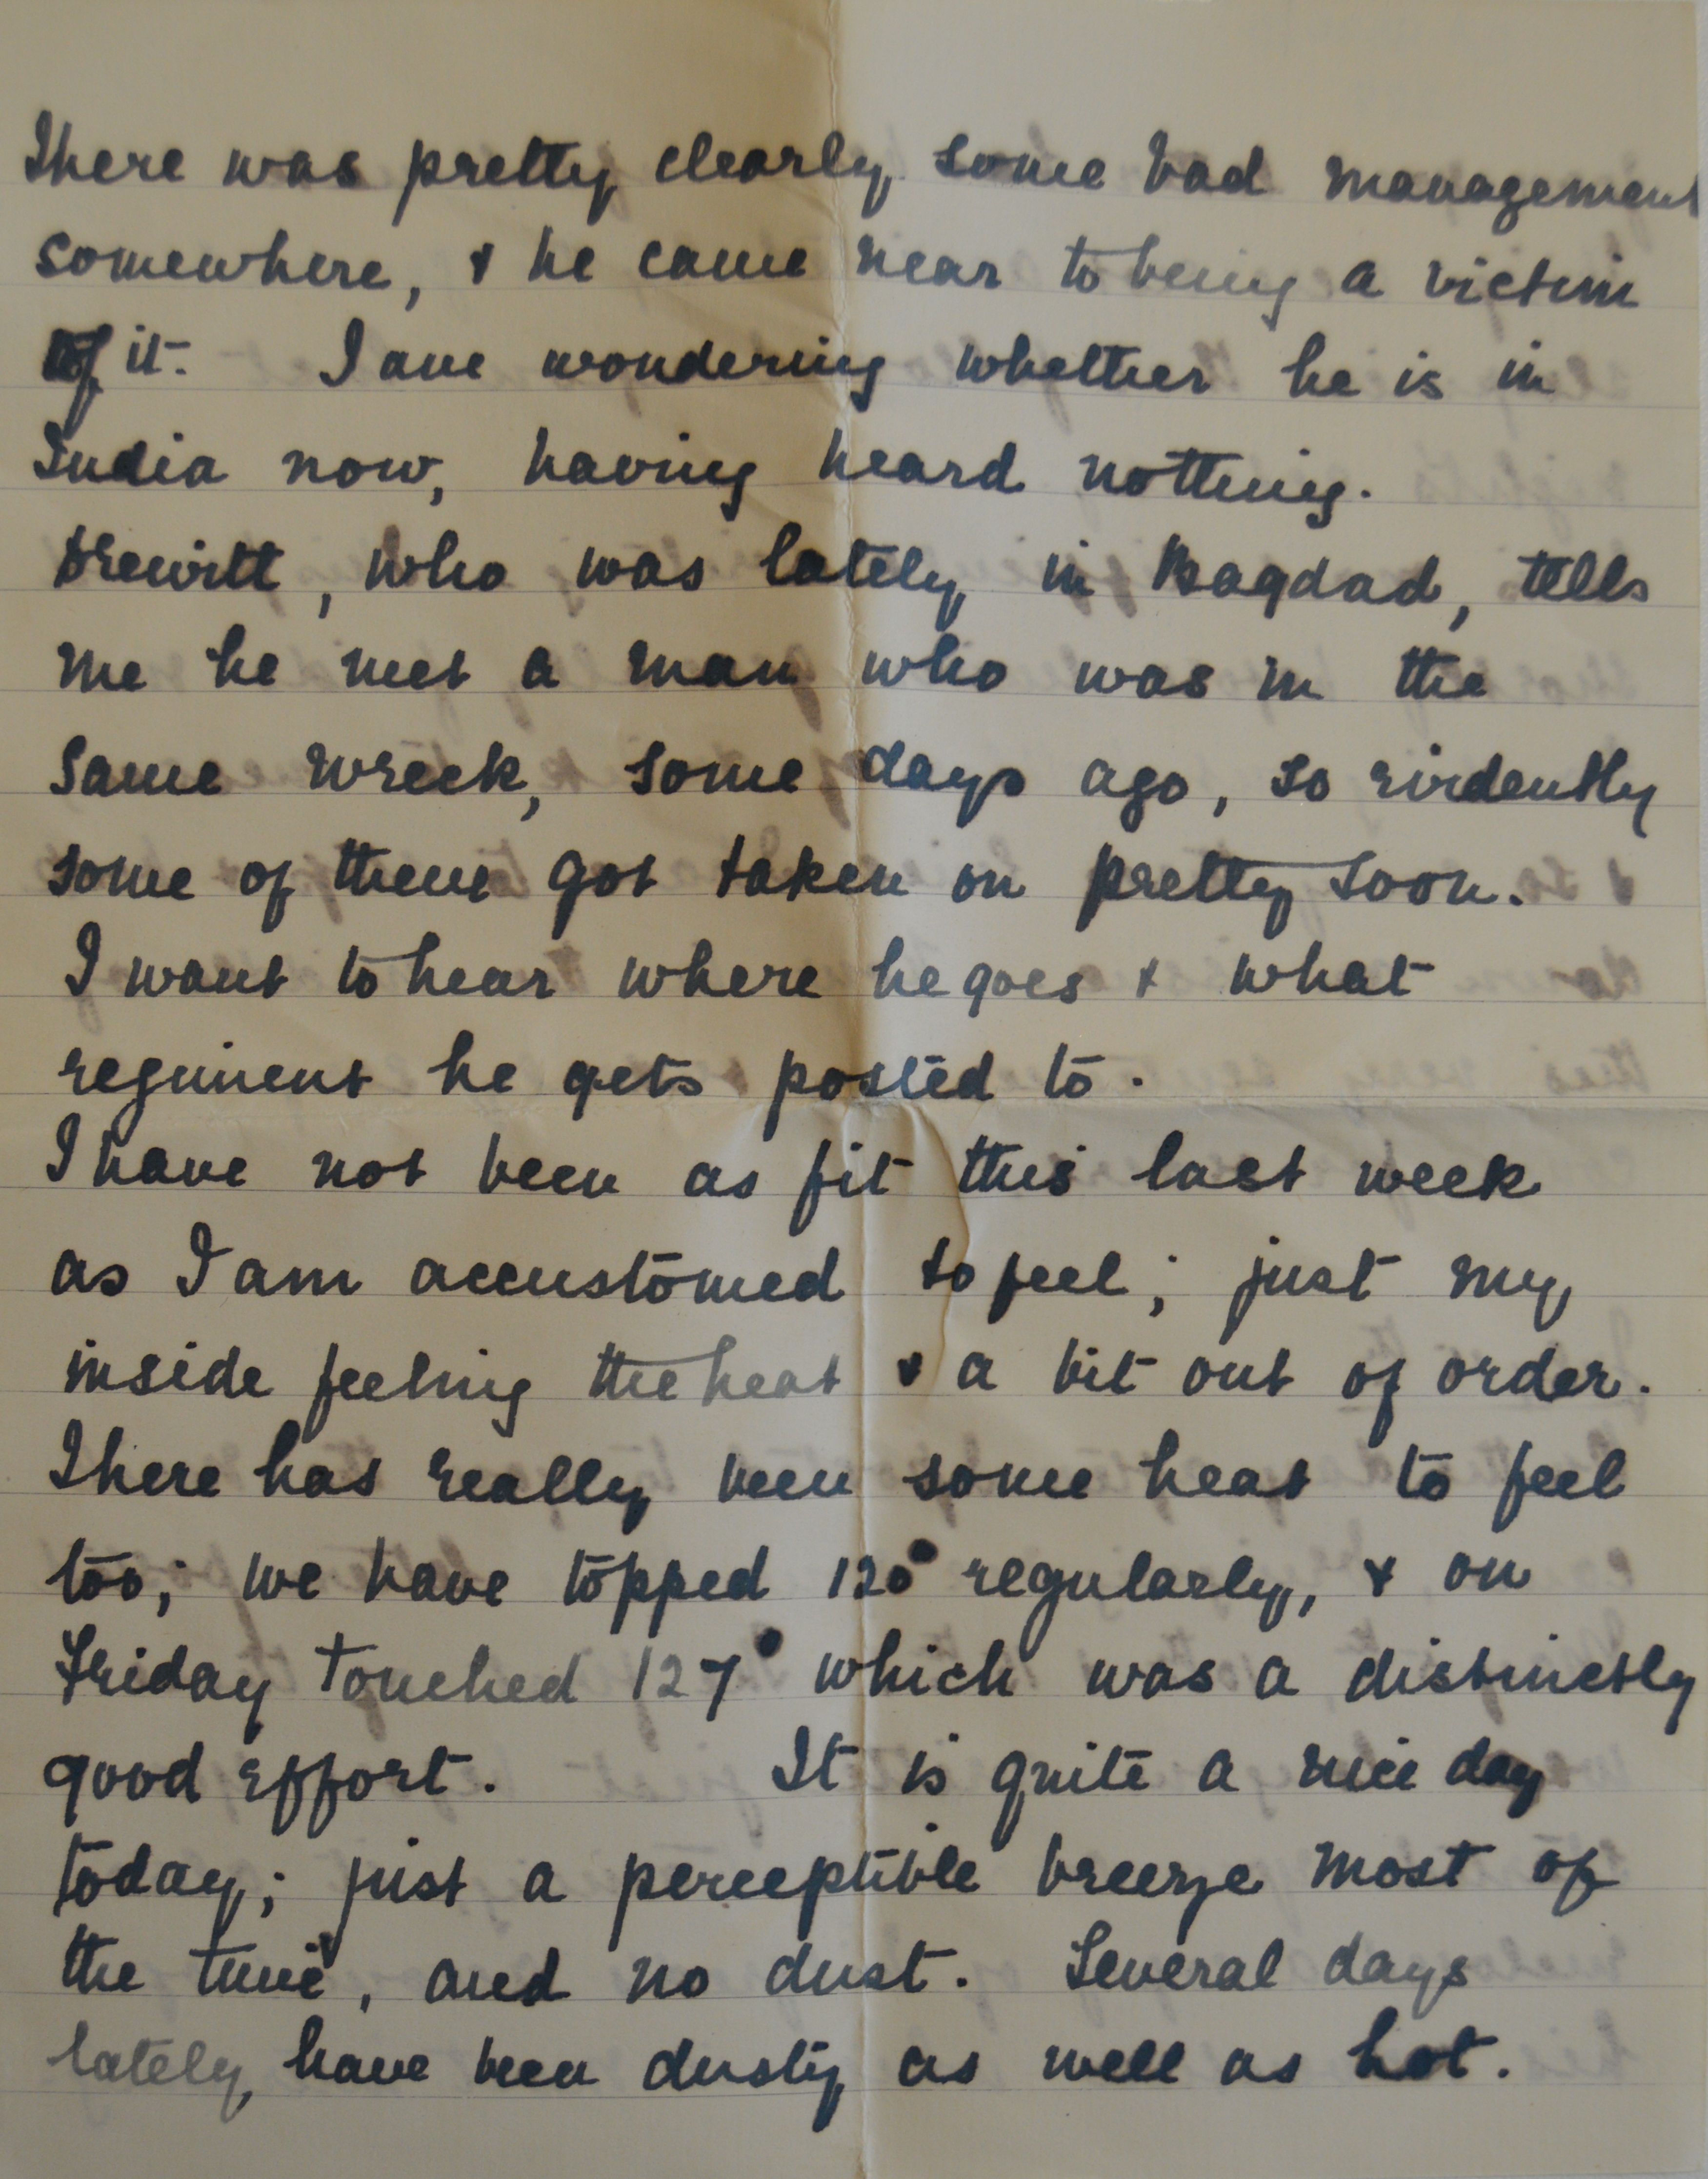 There was pretty clearly some bad management
somewhere, & he came near to being a victim
of it. I am wondering whether he is in
India now, having heard nothing.
Drewitt, who was lately in Bagdad, tells
me he met a man who was in the
same wreck, some days ago, so evidently
some of them got taken on pretty soon.
I want to hear where he goes & what
regiment he gets posted to.
I have not been as fit this last week
as I am accustomed to feel; just my
inside feeling the heat & a bit out of order.
There has really been some heat to feel
too; we have topped 120° regularly, & on
Friday touched 127° which was a distinctly
good effort. It is quite a nice day
today; just a perceptible breeze most of
the time, and no dust. Several days
lately have been dusty as well as hot.